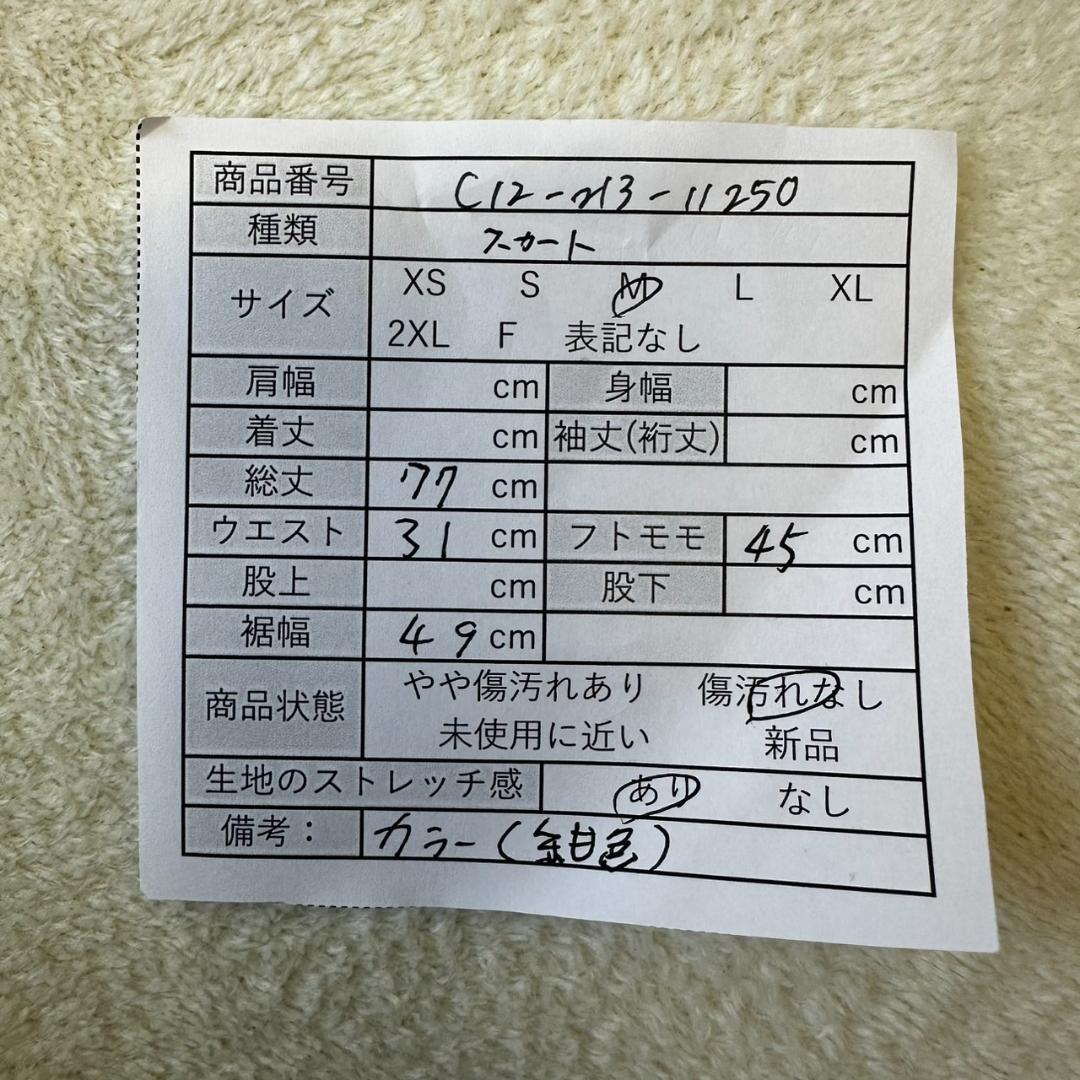 商品番号 C12-213-11250
種類 スカート
サイズ XS S M L XL
2XL F 表記なし
肩幅 cm 身幅 cm
着丈 cm 袖丈(裄丈) cm
総丈 77 cm
ウエスト 31 cm フトモモ 45 cm
股上 cm 股下 cm
裾幅 49 cm
商品状態 やや傷汚れあり 傷汚れなし
未使用に近い 新品
生地のストレッチ感 あり なし
備考： カラー(紺色)